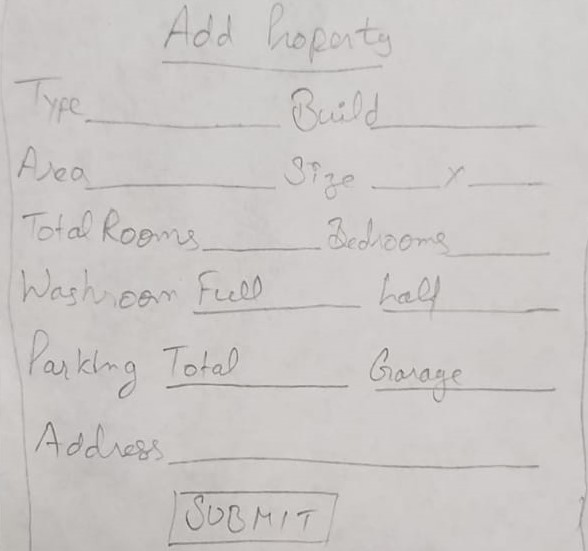 Add Property
Type Build
Area Size x
Total Rooms Bedrooms
Washroom Full half
Parking Total Garage
Address
SUBMIT